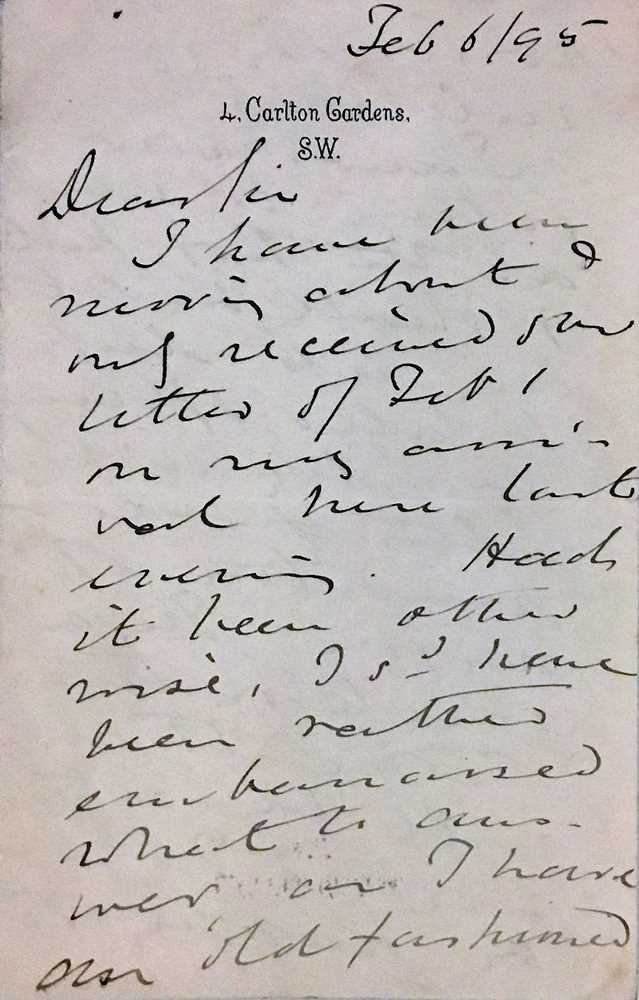 Feb 6/95
4, Carlton Gardens,
S.W.
Dear Sir
I have been
moving about &
only received your
letter of Feb 1
on my arri-
val here last
evening. Had
it been other
wise, I sd have
been rather
embarrassed
what to ans-
wer, as I have
an 'old fashioned